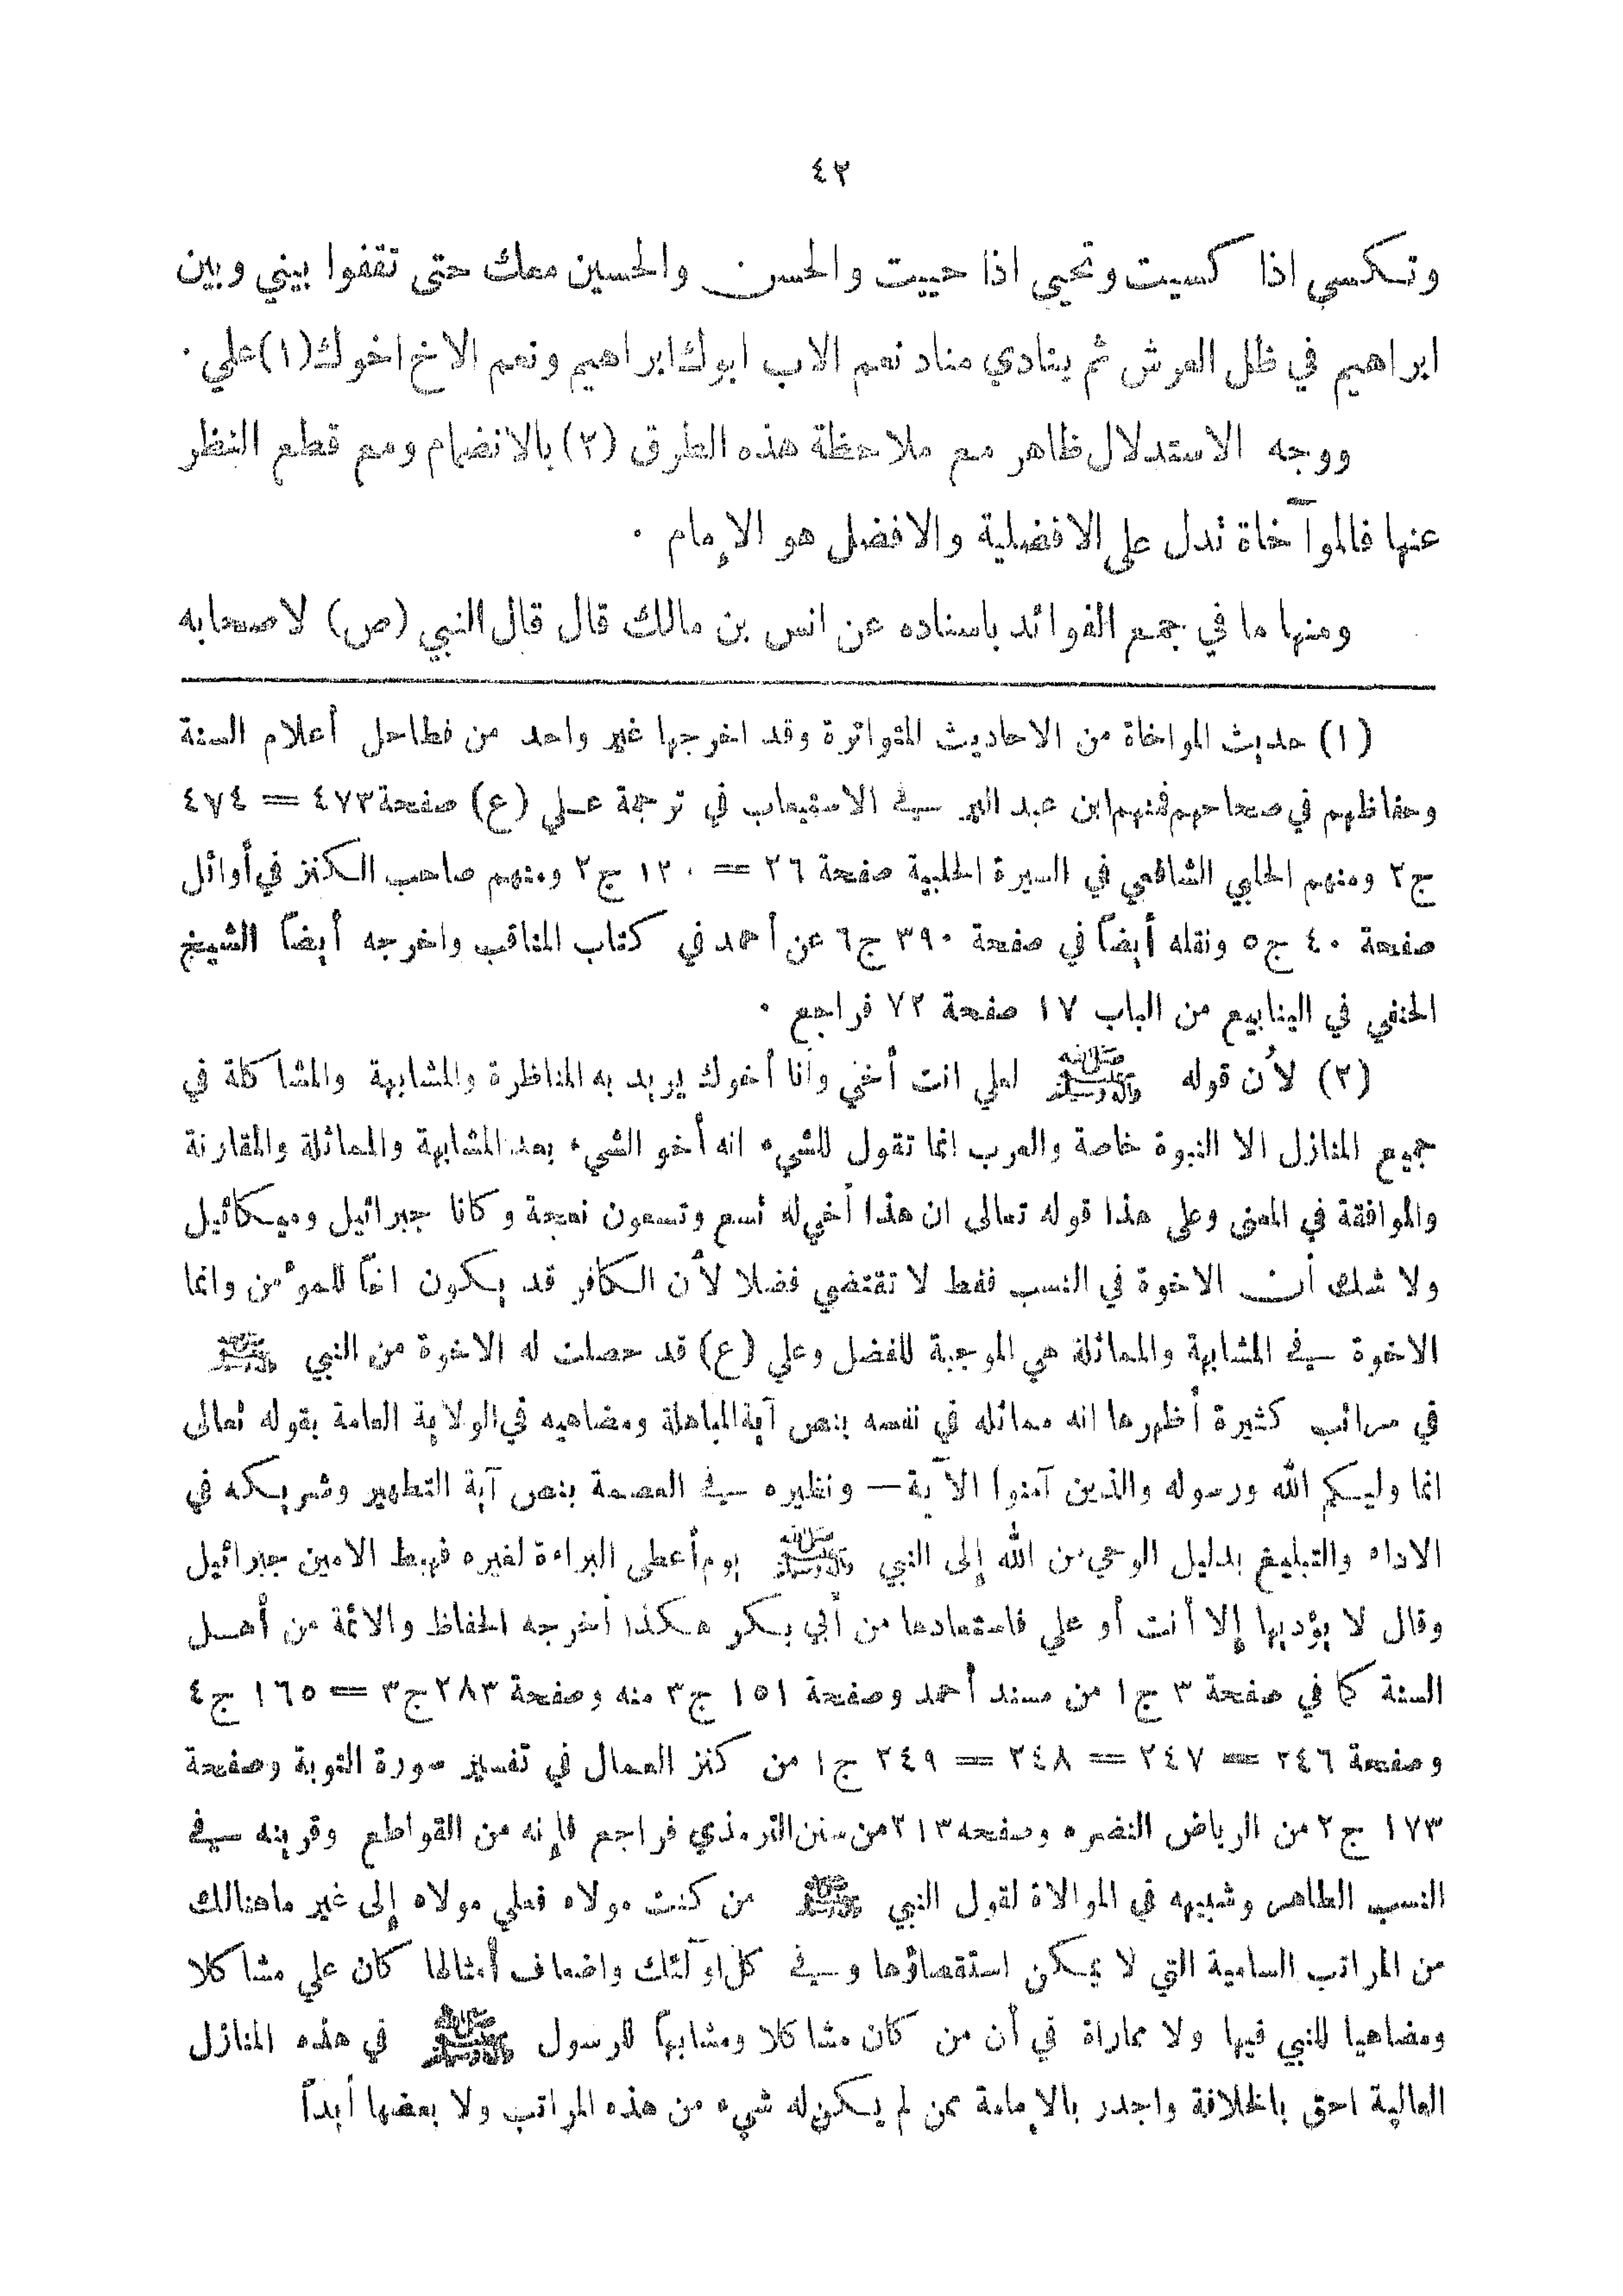 ٤٢
وتكسى اذا كسيت وتحيى اذا حييت والحسن والحسين معك حتى تقفوا بيني وبين
ابراهيم في ظل العرش ثم ينادي مناد نعم الاب ابوك ابراهيم ونعم الاخ اخوك (١) علي ·
ووجه الاستدلال ظاهر مع ملاحظة هذه الطرق (٢) بالانضمام ومع قطع النظر
عنها فالموآخاة تدل على الافضلية والافضل هو الإمام ·
ومنها ما في جمع الفوائد باسناده عن انس بن مالك قال قال النبي (ص) لاصحابه
(١) حديث المواخاة من الاحاديث المتواترة وقد اخرجها غير واحد من فطاحل أعلام السنة
وحفاظهم في صحاحهم فمنهم ابن عبد البر في الاستيعاب في ترجمة علي (ع) صفحة ٤٧٣ = ٤٧٤
ج٢ ومنهم الحلبي الشافعي في السيرة الحلبية صفحة ٢٦ = ١٢٠ ج٢ ومنهم صاحب الكنز في أوائل
صفحة ٤٠ ج٥ ونقله أيضاً في صفحة ٣٩٠ ج٦ عن أحمد في كتاب المناقب واخرجه أيضاً الشيخ
الحنفي في الينابيع من الباب ١٧ صفحة ٧٢ فراجع ·
(٢) لأن قوله ﷺ لعلي انت أخي وأنا أخوك يريد به المناظرة والمشابهة والمشاكلة في
جميع المنازل الا النبوة خاصة والعرب انما تقول للشيء انه أخو الشيء بعد المشابهة والمماثلة والمقارنة
والموافقة في المعنى وعلى هذا قوله تعالى ان هذا أخي له تسع وتسعون نعجة وكانا جبرائيل وميكائيل
ولا شك أن الاخوة في النسب فقط لا تقتضي فضلا لأن الكافر قد يكون اخاً للمؤمن وانما
الاخوة في المشابهة والمماثلة هي الموجبة للفضل وعلي (ع) قد حصلت له الاخوة من النبي ﷺ
في مراتب كثيرة أظهرها انه مماثله في نفسه بنص آية المباهلة ومضاهيه في الولاية العامة بقوله تعالى
انما وليكم الله ورسوله والذين آمنوا الآية — ونظيره في العصمة بنص آية التطهير وشريكه في
الاداء والتبليغ بدليل الوحي من الله إلى النبي ﷺ يوم أعطى البراءة لغيره فهبط الامين جبرائيل
وقال لا يؤديها إلا أنت أو علي فاستعادها من أبي بكر هكذا أخرجه الحفاظ والائمة من أهل
السنة كما في صفحة ٣ ج١ من مسند أحمد وصفحة ١٥١ ج٣ منه وصفحة ٢٨٣ ج٣ = ١٦٥ ج٤
وصفحة ٢٤٦ = ٢٤٧ = ٢٤٨ = ٢٤٩ ج١ من كنز العمال في تفسير سورة التوبة وصفحة
١٧٣ ج٢ من الرياض النضره وصفحه ٢١٣ من سنن الترمذي فراجع فإنه من القواطع وقرينه في
النسب الطاهر وشبيهه في الموالاة لقول النبي ﷺ من كنت مولاه فعلي مولاه إلى غير ماهنالك
من المراتب السامية التي لا يمكن استقصاؤها وفي كل اولئك واضعاف أمثالها كان علي مشاكلا
ومضاهيا للنبي فيها ولا مماراة في أن من كان مشاكلا ومشابهاً للرسول ﷺ في هذه المنازل
العالية احق بالخلافة واجدر بالإمامة ممن لم يكن له شيء من هذه المراتب ولا بعضها أبداً